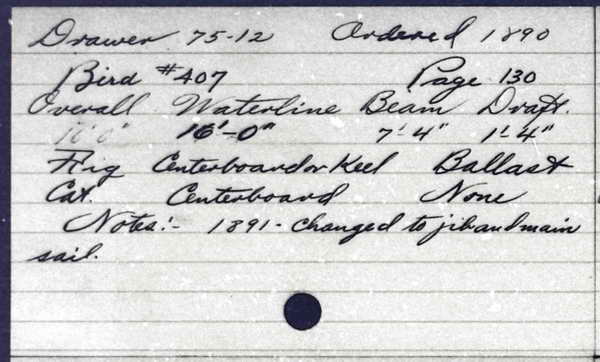 Drawer 75-12 Ordered 1890
Bird #407 Page 130
Overall Waterline Beam Draft.
16'-0" 16'-0" 7'-4" 1'-4"
Rig Centerboard or Keel Ballast
Cat. Centerboard None
Notes:- 1891- changed to jib and main
sail.